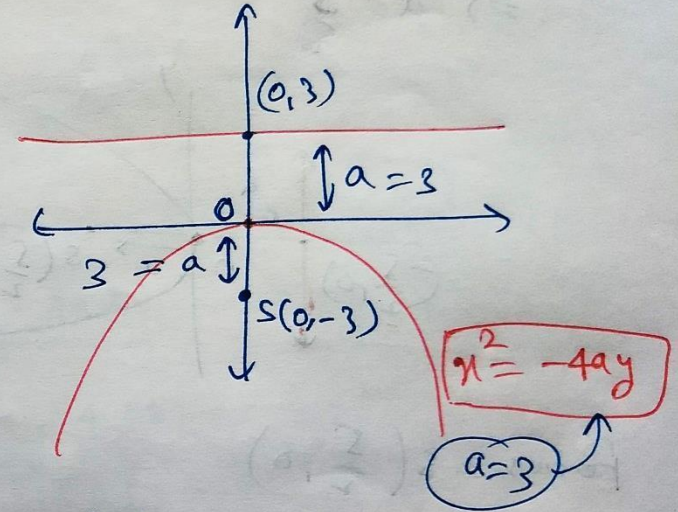 (0,3)
a = 3
O
3 = a
S(0,-3)
x² = -4ay
a=3